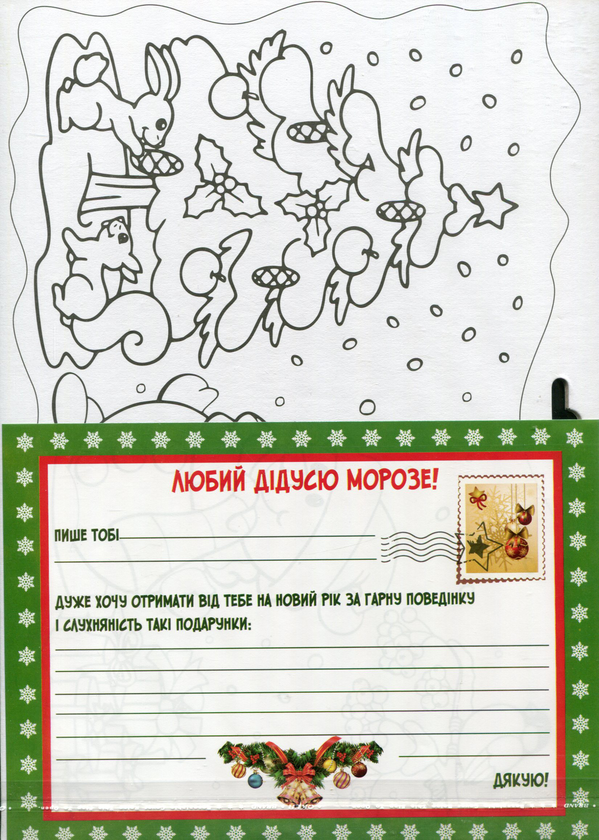 ЛЮБИЙ ДІДУСЮ МОРОЗЕ!
ПИШЕ ТОБІ
ДУЖЕ ХОЧУ ОТРИМАТИ ВІД ТЕБЕ НА НОВИЙ РІК ЗА ГАРНУ ПОВЕДІНКУ
І СЛУХНЯНІСТЬ ТАКІ ПОДАРУНКИ:
ДЯКУЮ!